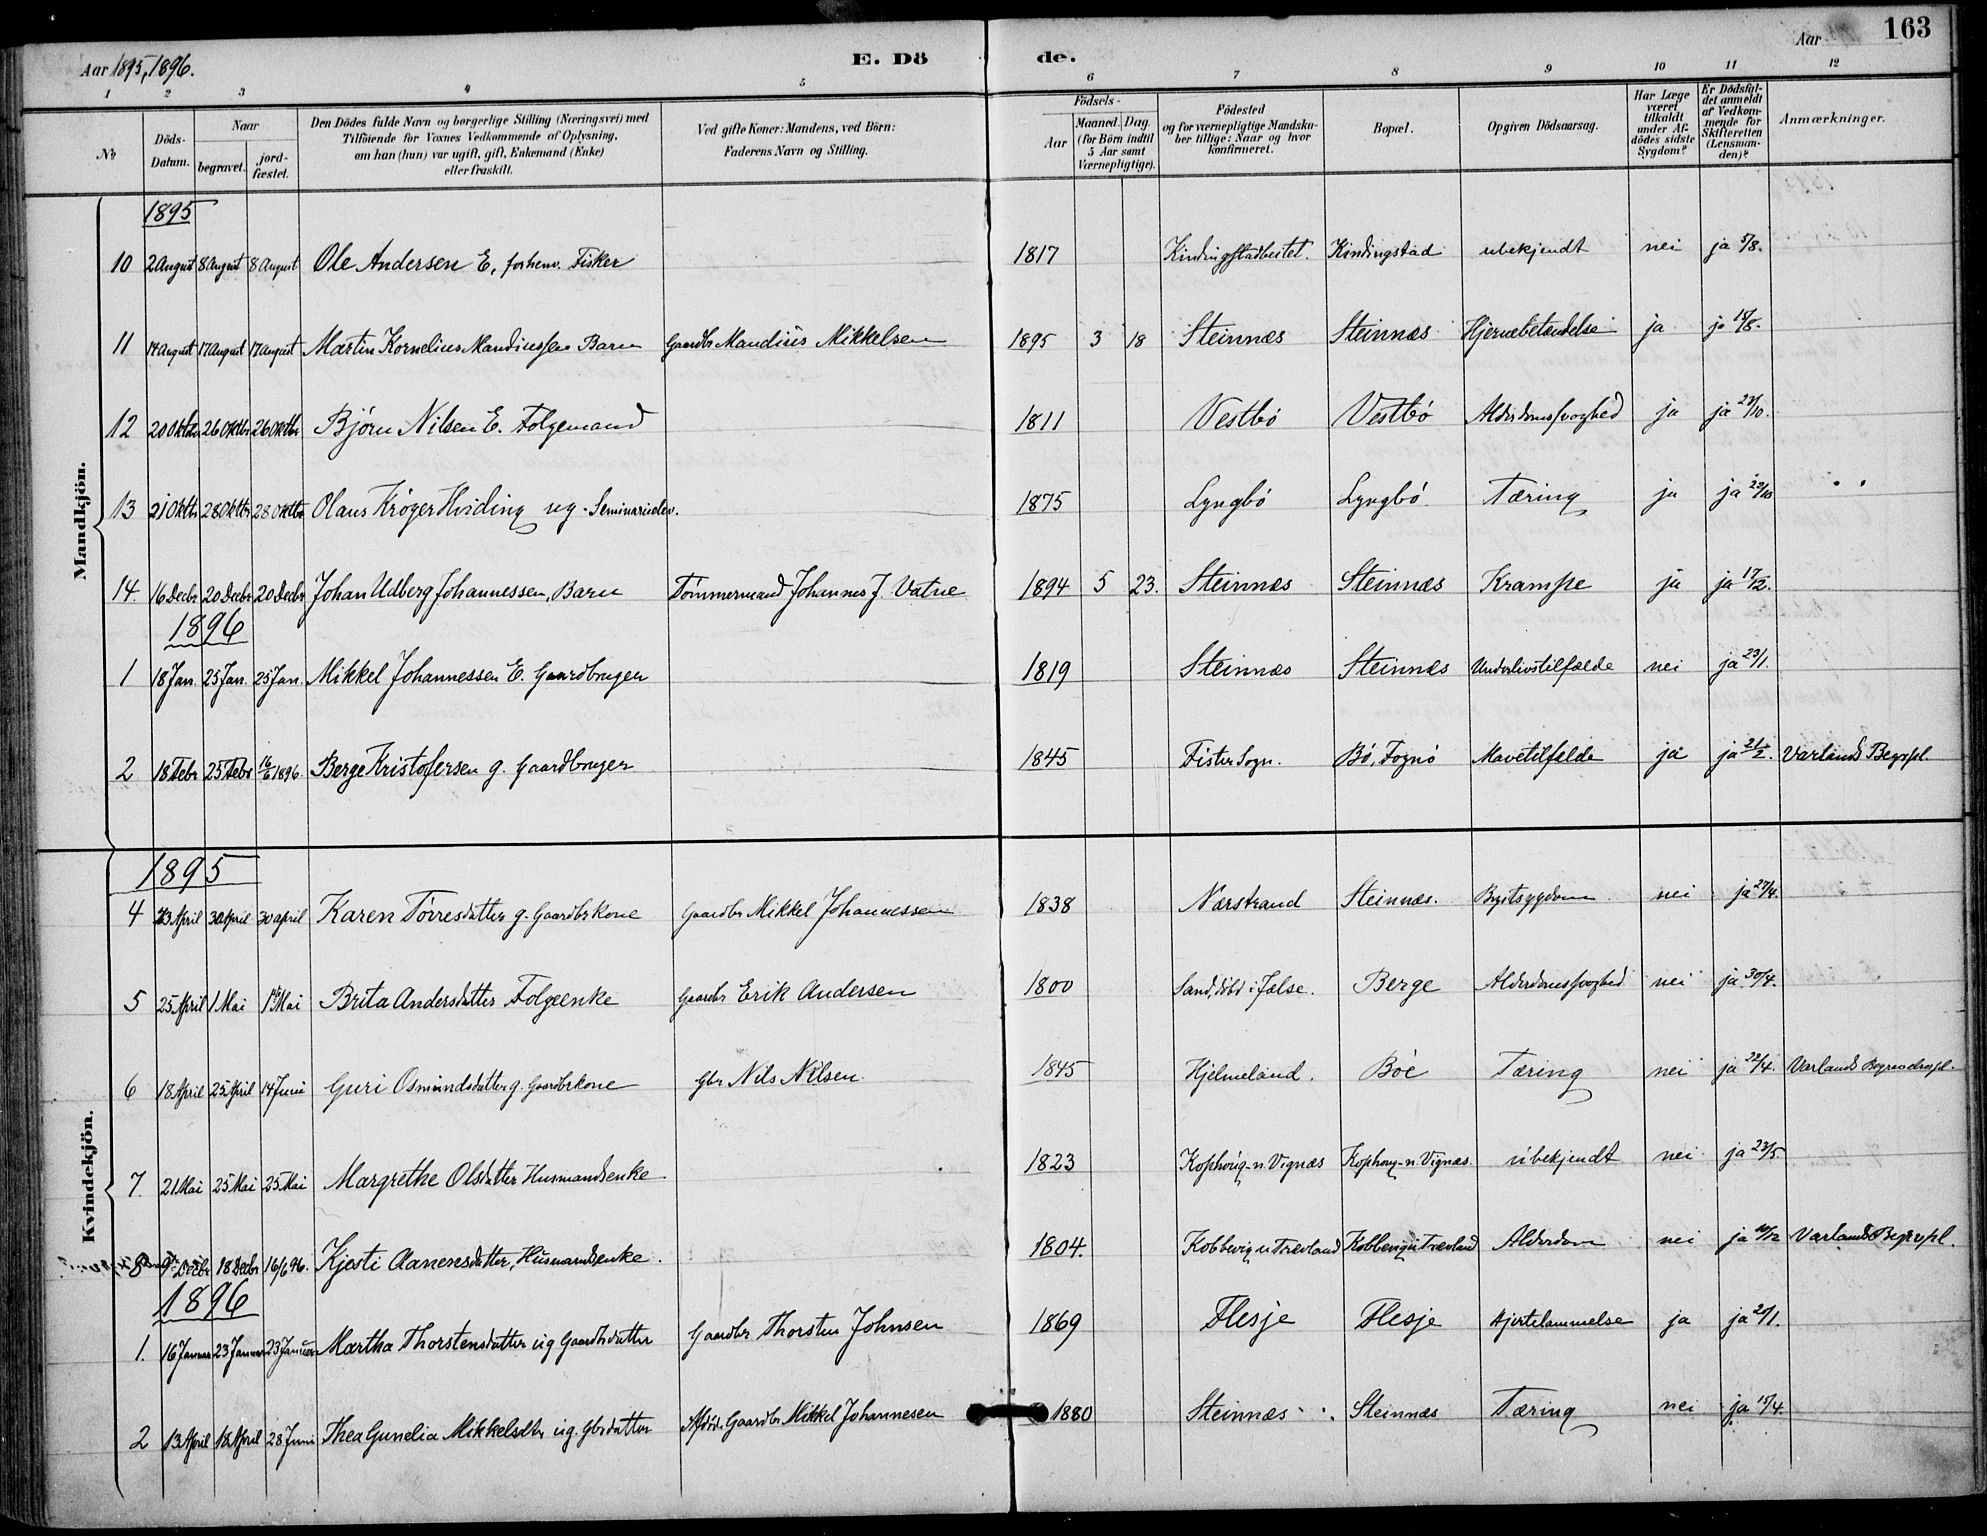 Aar 1895, 1896.
E. Dö
de.
Aar
163
1 2 3 4 5 6 7 8 9 10 11 12
No
Döds-Datum.
Naar
begravet.
jord-fæstet.
Den Dödes fulde Navn og borgerlige Stilling (Næringsvei) med
Tilföiende for Voxnes Vedkommende af Oplysning,
om han (hun) var ugift, gift, Enkemand (Enke)
eller fraskilt.
Ved gifte Koner: Mandens, ved Börn:
Faderens Navn og Stilling.
Födsels-
Aar
Maaned. Dag
(for Börn indtil
5 Aar samt
Værnepligtige).
Födested
og for værnepligtige Mandska-
ber tillige: Naar og hvor
konfirmeret.
Bopæl.
Opgiven Dödsaarsag.
Har Læge
været
tilkaldt
under Af-
dödes sidste
Sygdom?
Er Dödsfal-
det anmeldt
af Vedkom-
mende for
Skifteretten
(Lensman-
den)?
Anmærkninger.
Mandkjön.
1895
10 2 August 8 August 8 August Ole Andersen E, forhenv. Fisker 1817 Kindingstad ubekjendt nei ja 5/8.
11 14 August 17 August 17 August Martin Kornelius Mandiussen Barn Gaardbr Mandius Mikkelsen 1895 3 18 Steinnæs Steinnæs Hjernebetændelse ja ja 15/8.
12 20 Oktbr 26 Oktbr 26 Oktbr Björn Nilsen E. Folgemand 1811 Vestbö Vestbö Alderdomssvaghed ja ja 23/10.
13 21 Oktbr 28 Oktbr 28 Oktbr Olaus Kröger Hviding ug. Seminarielev. 1875 Lyngbö Lyngbö. Tæring ja ja 23/10
14. 16 Decbr 20 Decbr 20 Decbr Johan Udberg Johannessen, Barn Tömmermand Johannes J. Vatne 1894 5 23. Steinnæs Steinnæs Krampe ja ja 17/12.
1896
1 18 Jan. 25 Jan. 25 Jan. Mikkel Johannessen E. Gaardbruger 1819 Steinnæs Steinnæs Underlivstilfælde nei ja 23/1.
2 18 Febr 25 Febr 16/6 1896. Berge Kristofersen g. Gaardbruger 1845 Fister Sogn. Bö, Fognö Mavetilfælde ja ja 21/2. Varlands Begrpl.
Kvindekjön.
1895
4 23 April 30 April 30 april Karen Törresdatter g. Gaardbrkone Gaardbr Mikkel Johannessen 1838 Nærstrand Steinnæs. Brystsygdom nei ja 27/4.
5 25 April 1 Mai 1 Mai Brita Andersdatter Folgeenke Gaardbr Erik Andersen 1800 Sand, döbt i Jelse. Berge Alderdomssvaghed nei ja 30/4.
6 18 April 25 April 14 Juni Guri Osmundsdatter g. Gaardbrkone Gbr Nils Nilsen. 1845 Hjelmeland. Böe Tæring nei ja 22/4. Varlands Begravelsespl.
7. 21 Mai 25 Mai 25 Mai Margrethe Olsdatter Husmandsenke 1823 Kophoug u. Vignæs Kophoug u. Vignæs. ubekjendt nei ja 23/5
8 9 Decbr 18 Decbr 16/6 96. Kjersti Aanensdatter, Husmandsenke. 1804. Kobbevig u Trævland Kobbevig u Trævland Alderdom nei ja 10/12 Varlands Begrpl.
1896
1. 16 Januar 23 Januar 23 Januar Martha Thorstensdatter ug Gaardbdatter Gaardbr Thorsten Johnsen 1869 Flesje Flesje Hjertelammelse ja ja 20/1.
2 13 April 18 April 28 Juni Thea Gunelia Mikkelsdtr ug. Gbrdatter Afdöde Gaardbr Mikkel Johannesen 1880 Steinnæs Steinnæs Tæring nei ja 15/4.